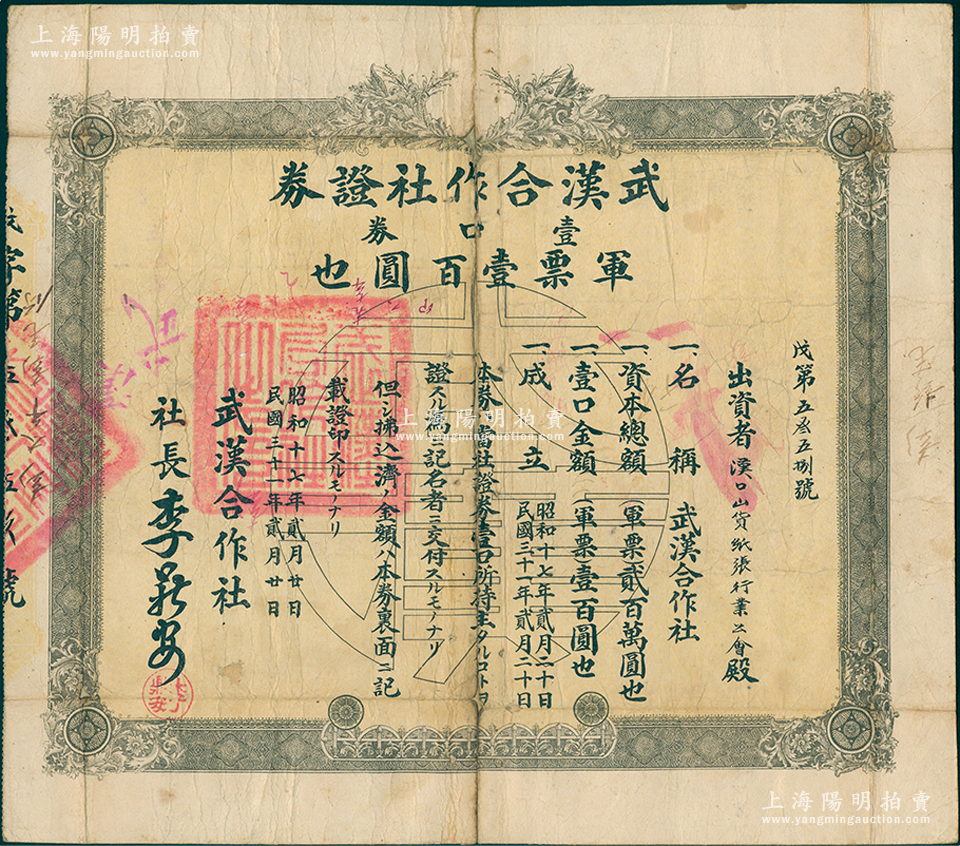 上海陽明拍賣
www.yangmingauction.com
武漢合作社證券
壹口券
軍票壹百圓也
戊第五〇五捌號
出資者 漢口山貨紙張行業公會殿
一、名稱 武漢合作社
一、資本總額 (軍票貳百萬圓也
一、壹口金額 (軍票壹百圓也
一、成立 昭和十七年貳月二十日
民國三十一年貳月二十日
本券ハ當社證券壹口所持主タルコトヲ
證スル爲メ記名者ニ交付スルモノナリ
但シ拂込濟ノ金額ハ本券裏面ニ記
載證印スルモノナリ
昭和十七年貳月廿日
民國三十一年貳月廿日
武漢合作社
社長 李荊安
字第
號
上海陽明拍賣
www.yangmingauction.com
上海陽明拍賣
www.yangmingauction.com